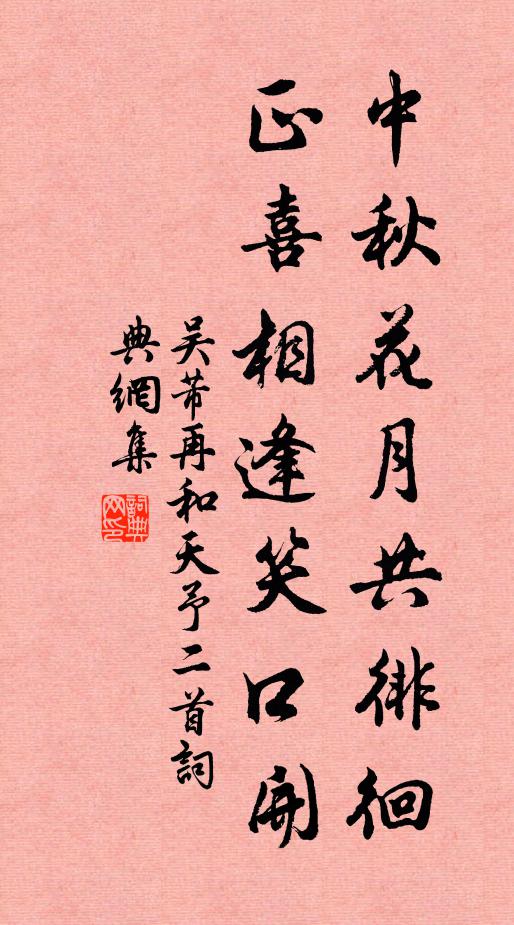 中秋花月共徘徊
正喜相逢笑口開
吳芾再和天予二首詞
典網集
詞典
网印